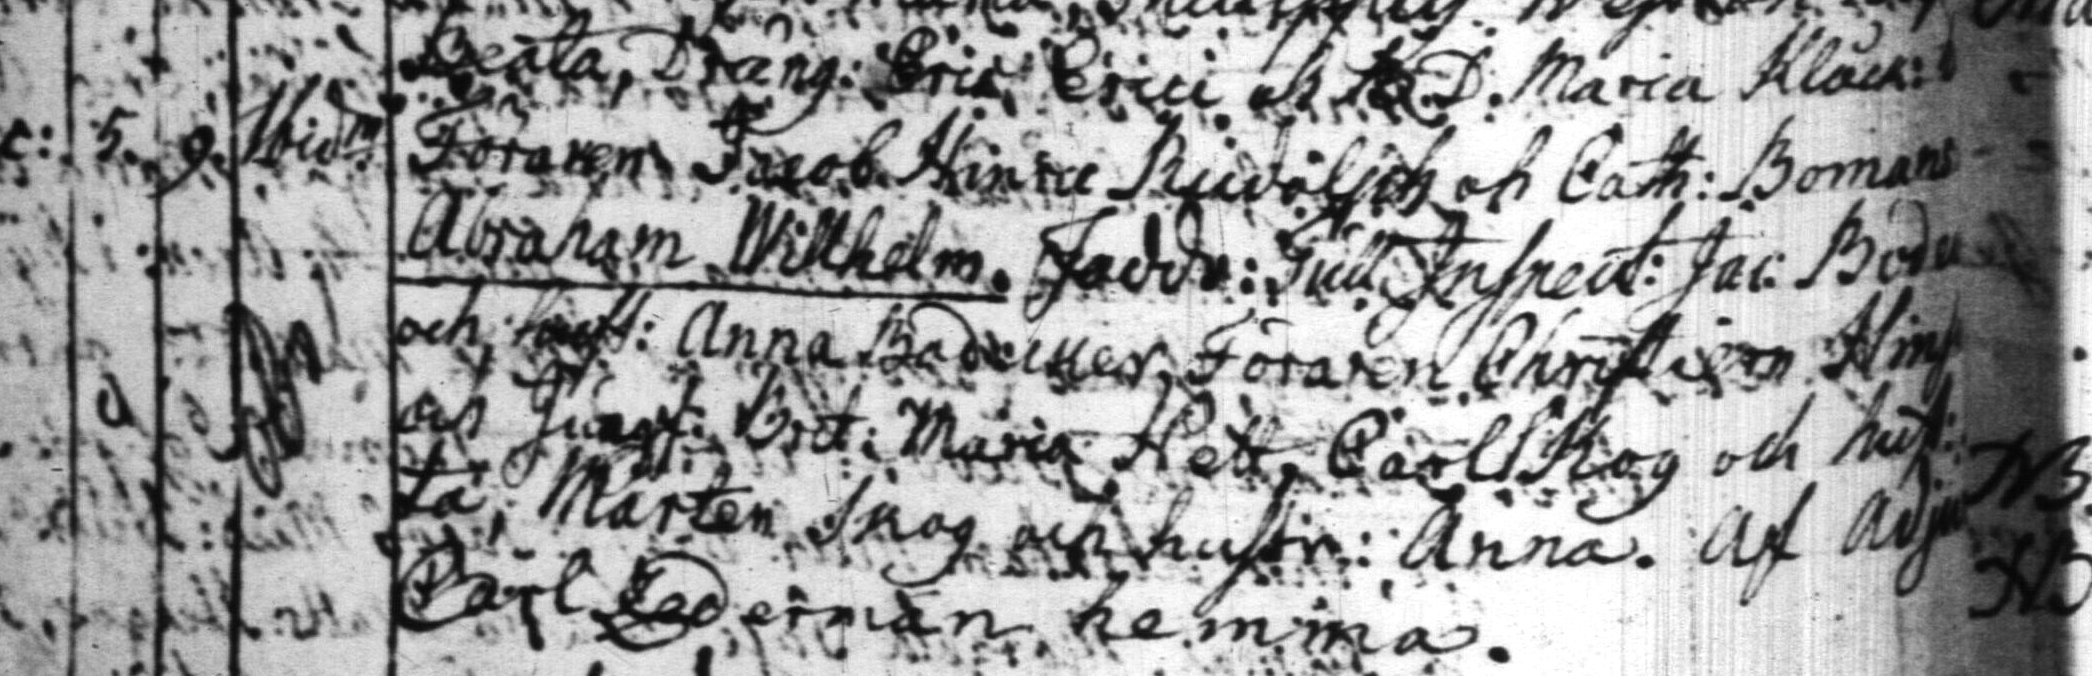 Beata, Dräng: Eric Erici och D. Maria Klock:
c: 5. 9. Ibidm Föraren Jacob Hinric Rudolph och Cath: Bomans
Abraham Wilhelm. Faddr: Tull Inspect: Jac: Bodu
och hust: Anna Föraren Christiern
och Jungf: Brit: Maria Hett, Carl Skog och hust:
NB
ta, Mårten Skog och hustr: Anna. Af Adju
NB
Carl Lederman hemma.